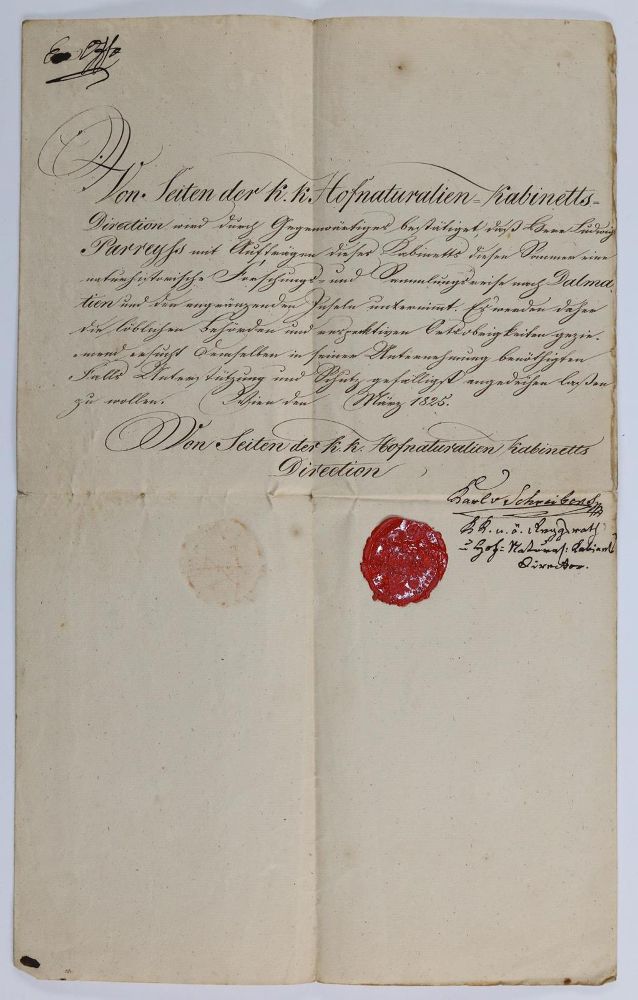 Von Seiten der k. k. Hofnaturalien-Kabinetts-
Direction wird durch Gegenwärtiges bestätiget, daß Herr Ludwig
Parreyss mit Aufträgen dieses Kabinetts diesen Sommer eine
naturhistorische Forschungs- und Sammlungsreise nach Dalma-
tien und den angränzenden Inseln unternimmt. Es werden daher
die löblichen Behörden und respektiven Ortsobrigkeiten gezie-
mend ersucht demselben in seiner Unternehmung benöthigten
Falls Unterstützung und Schutz gefälligst angedeihen laßen
zu wollen. Wien den März 1825.
Von Seiten der k. k. Hofnaturalien Kabinetts
Direction
Karl v Schreibers
k.k. n. ö. Regg.rath
u Hof-Natural: Kabinets
Director.